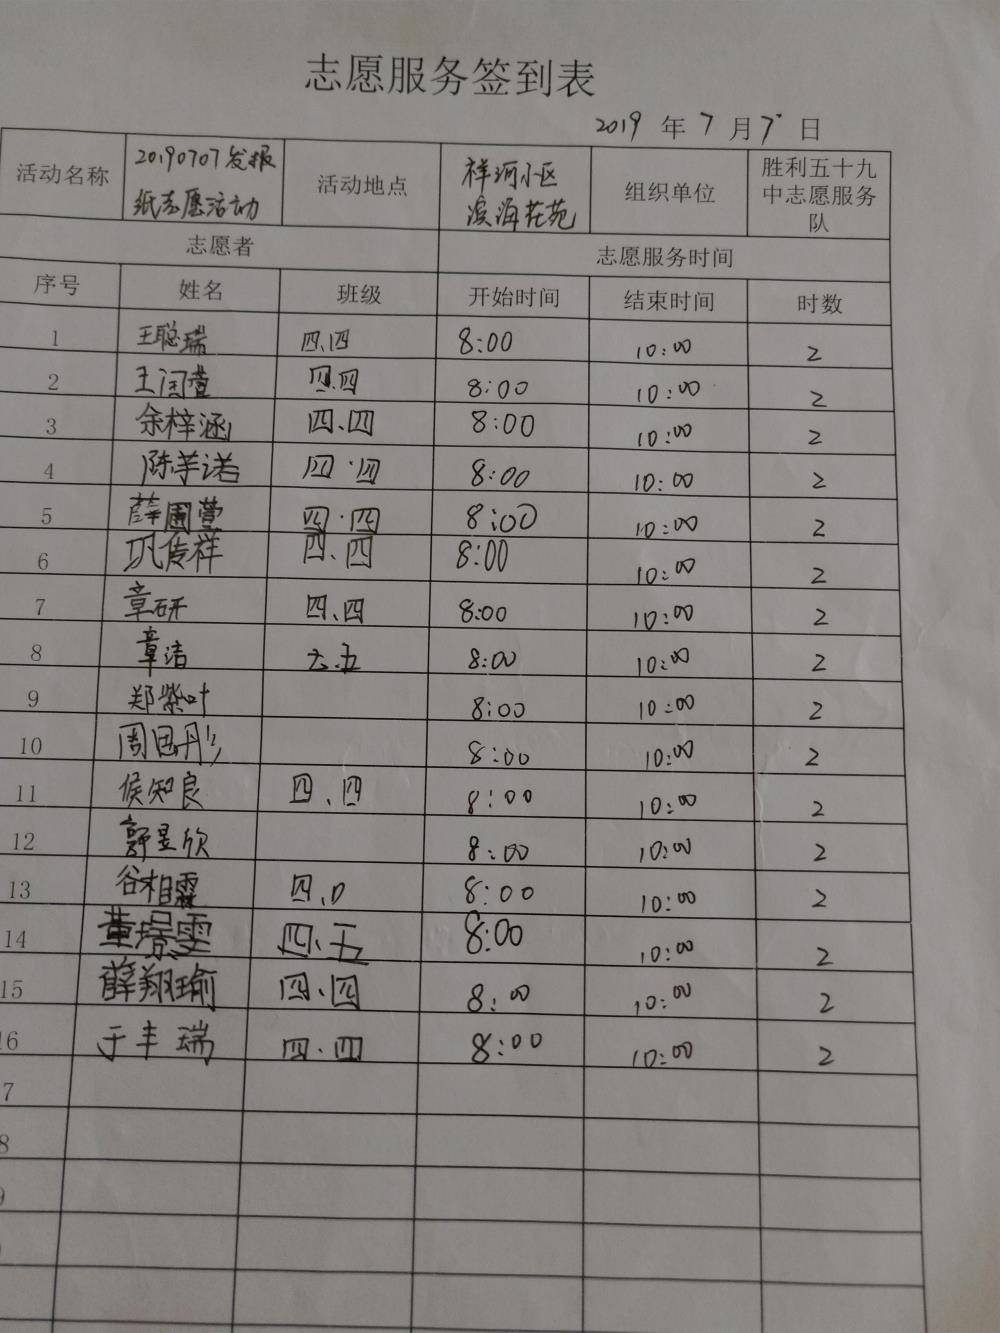 志愿服务签到表
2019 年 7 月 7 日
活动名称 20190707发报 活动地点 祥河小区 组织单位 胜利五十九
纸志愿活动 滨海花苑 中志愿服务
队
志愿者 志愿服务时间
序号 姓名 班级 开始时间 结束时间 时数
1 王聪瑞 四.四 8:00 10:00 2
2 王闰萱 四.四 8:00 10:00 2
3 余梓涵 四、四 8:00 10:00 2
4 陈芊诺 四·四 8:00 10:00 2
5 薛圃萱 四·四 8:00 10:00 2
6 巩传祥 四、四 8:00 10:00 2
7 章研 四、四 8:00 10:00 2
8 章洁 六.五 8:00 10:00 2
9 郑紫叶 8:00 10:00 2
10 周 8:00 10:00 2
11 侯知良 四、四 8:00 10:00 2
12 郭昱欣 8:00 10:00 2
13 谷相霖 四、 8:00 10:00 2
14 董璟雯 四、五 8:00 10:00 2
15 薛翔瑜 四、四 8:00 10:00 2
16 于丰瑞 四·四 8:00 10:00 2
7
8
9